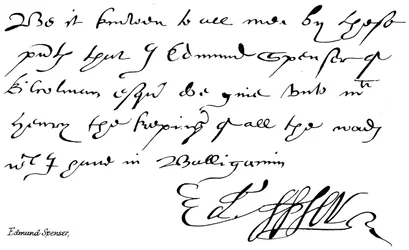 Be it knowen to all men by these
pñts that I Edmund Spenser of
Kilcolman esqʳ doe giue vnto mʳ
Henry the keping of all the wods
wᶜʰ I haue in Balliganim
Ed Spser
Edmund Spenser.